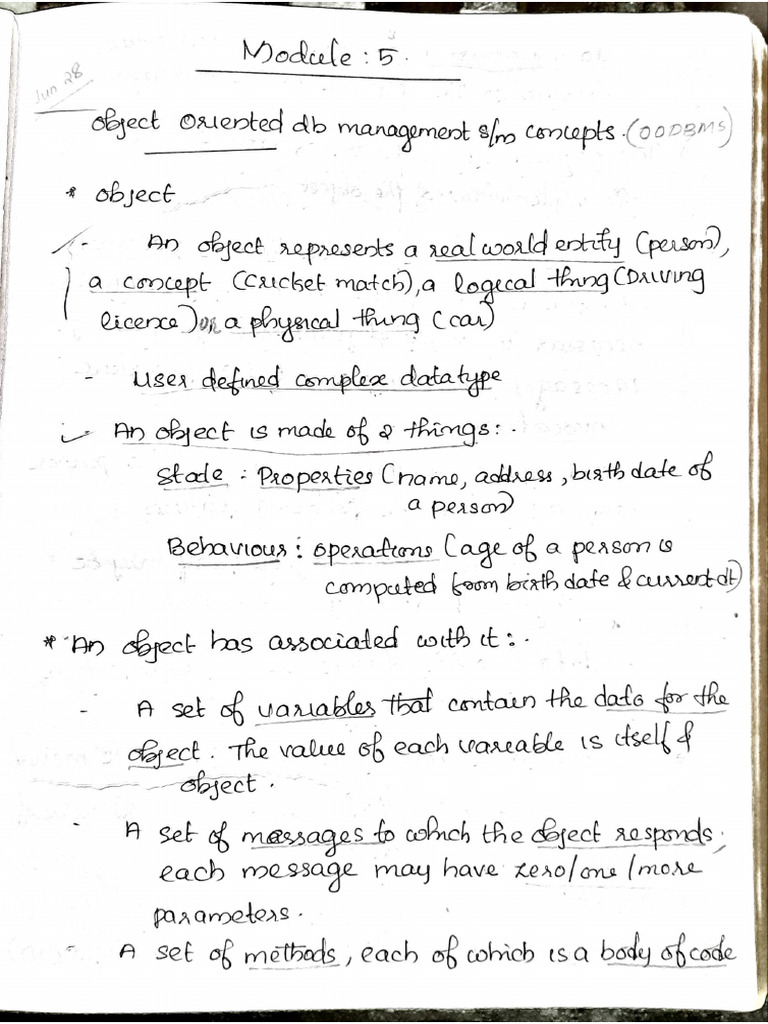 Module : 5.
Jun 28
object oriented db management s/m concepts. (OODBMS)
* object
- An object represents a real world entity (person),
a concept (cricket match), a logical thing (Driving
licence) or a physical thing (car)
- user defined complex datatype
- An object is made of 2 things:.
State : Properties (name, address, birth date of
a person)
Behaviour : operations (age of a person is
computed from birth date & current dt)
* An object has associated with it:.
- A set of variables that contain the data for the
object. The value of each variable is itself
object.
- A set of messages to which the object responds,
each message may have zero/one/more
parameters.
- A set of methods, each of which is a body of code